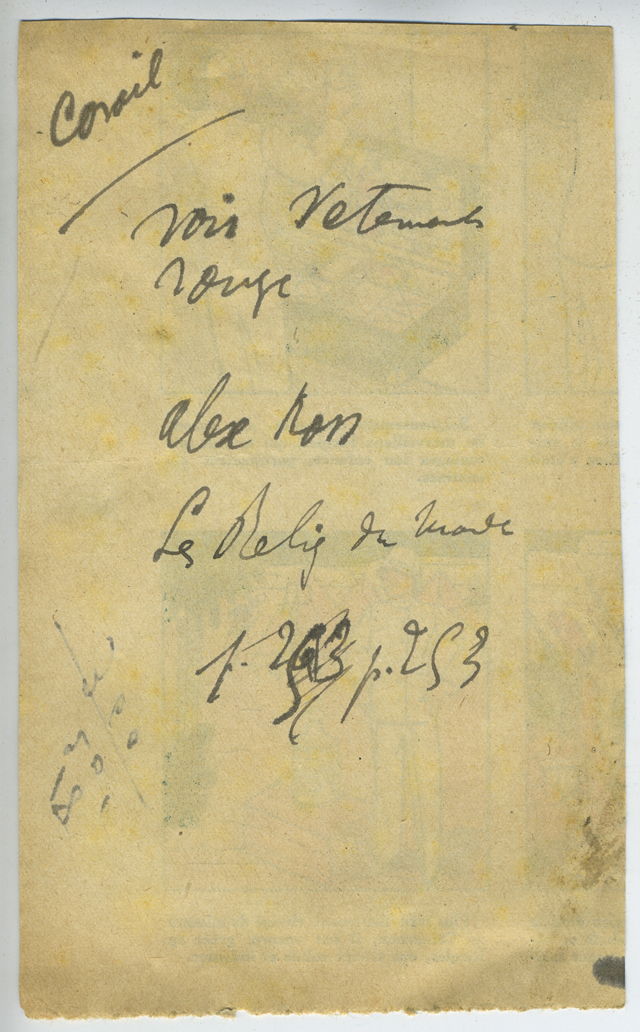 Corail
voir Vetements
rouge
alex Ross
Les Relig du Monde
p. 253 p. 253